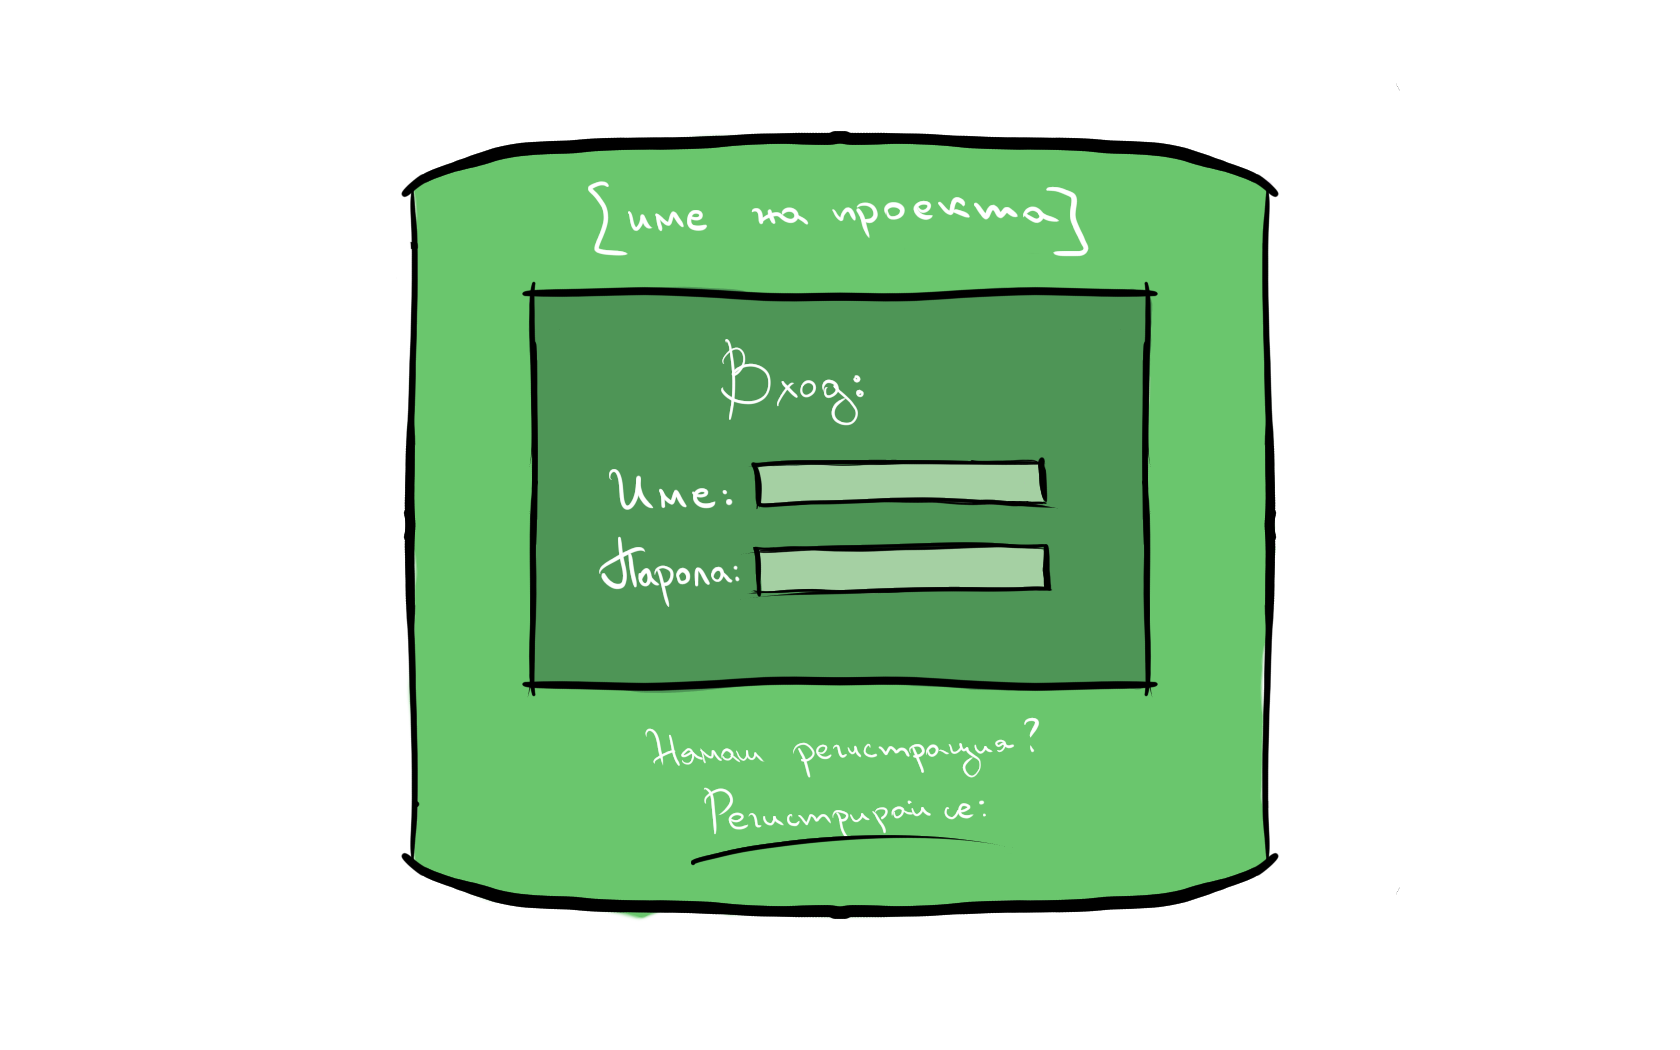 [име на проекта]
Вход:
Име:
Парола:
Нямаш регистрация?
Регистрирай се: